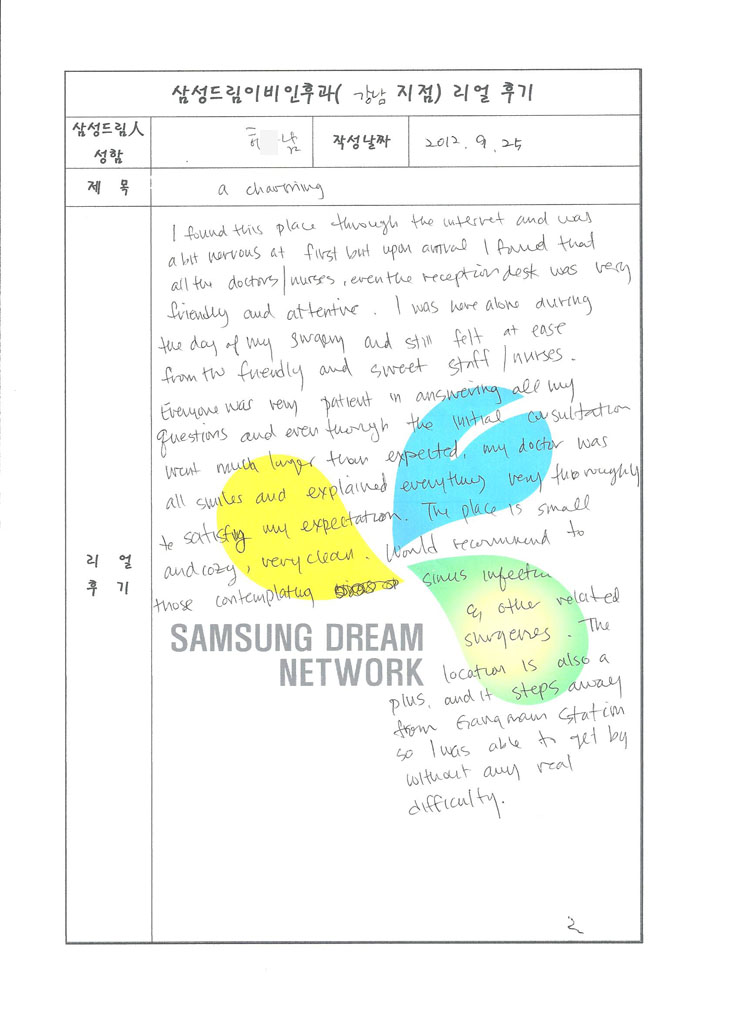 삼성드림이비인후과( 강남 지점) 리얼 후기
삼성드림人
성함
허 남
작성날짜
2012. 9. 25
제 목
a charming
I found this place through the internet and was
a bit nervous at first but upon arrival I found that
all the doctors/nurses, even the reception desk was very
friendly and attentive. I was here alone during
the day of my surgery and still felt at ease
from the friendly and sweet staff/nurses.
Everyone was very patient in answering all my
questions and even though the initial consultation
went much longer than expected, my doctor was
all smiles and explained everything very thoroughly
to satisfy my expectation. The place is small
and cozy, very clean. Would recommend to
those contemplating sinus infection
& other related
surgeries. The
location is also a
plus, and it steps away
from Gangnam Station
so I was able to get by
without any real
difficulty.
리 얼
후 기
SAMSUNG DREAM
NETWORK
2